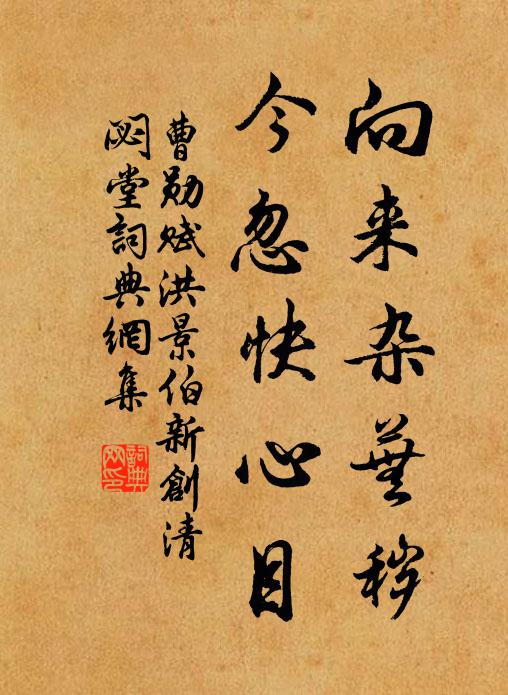 向来杂芜秽
今忽快心目
曹勋赋洪景伯新創清
閟堂詞典網集
詞典网印